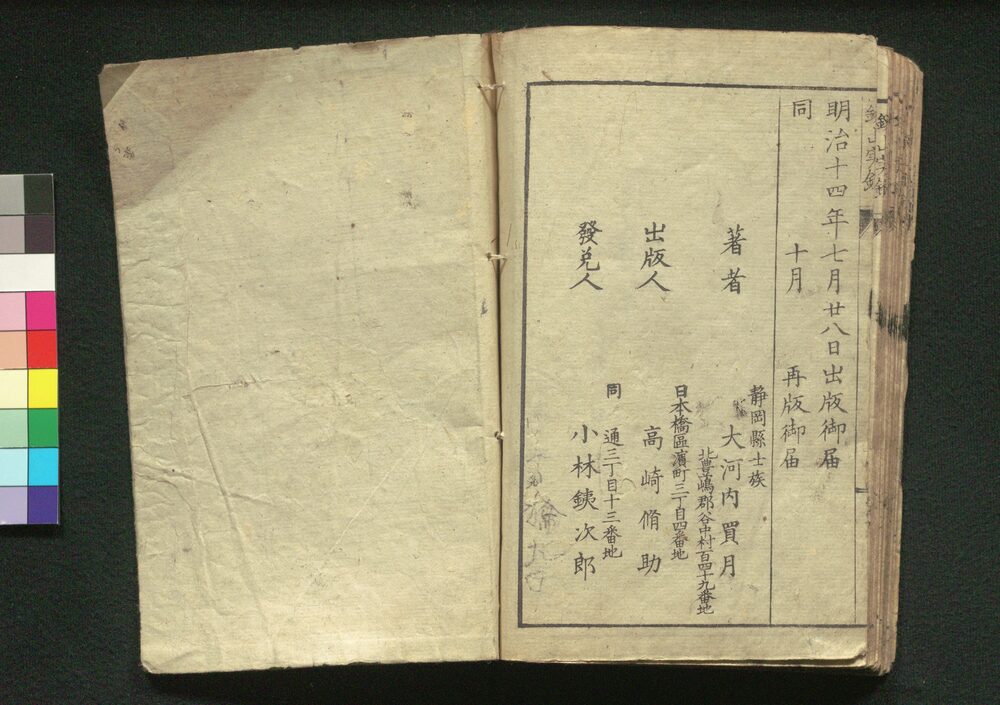 明治十四年七月廿八日出版御届
同 十月 再版御届
静岡縣士族
著者 大河内買月
北豊嶋郡谷中村百四十九番地
日本橋區濱町三丁目四番地
出版人 高崎脩助
同 通三丁目十三番地
發兌人 小林銕次郎